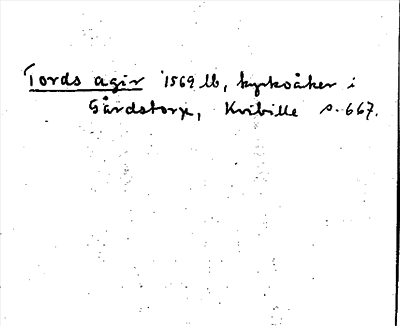 Tords agir 1569 lb, kyrkoåker i
Gårdstorp, Kvibille s. 667.